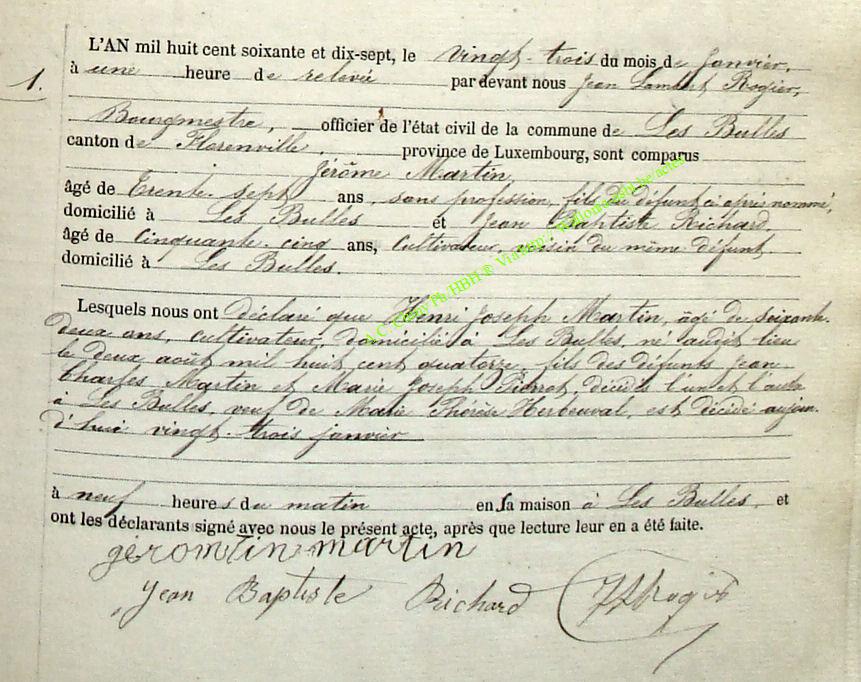 L'AN mil huit cent soixante et dix-sept, le vingt-trois du mois de janvier,
1.
à une heure de relevée par devant nous Jean Lambert Rogier,
Bourgmestre, officier de l'état civil de la commune de Les Bulles
canton de Florenville, province de Luxembourg, sont comparus
Jérôme Martin,
âgé de Trente-sept ans, sans profession, fils du défunt ci après nommé,
domicilié à Les Bulles et Jean Baptiste Richard,
âgé de cinquante-cinq ans, cultivateur, voisin du même défunt
domicilié à Les Bulles.
Lesquels nous ont déclaré que Henri Joseph Martin, âgé de soixante-
deux ans, cultivateur, domicilié à Les Bulles, né audit lieu
le deux août mil huit cent quatorze, fils des défunts Jean
Charles Martin et Marie Joseph Pierret, décédés l'un et l'autre
à Les Bulles, veuf de Marie Thérèse Herbeuval, est décédé aujour-
d'hui vingt-trois janvier
à neuf heures du matin en sa maison à Les Bulles, et
ont les déclarants signé avec nous le présent acte, après que lecture leur en a été faite.
géromtin martin
Jean Baptiste Richard JLRogier